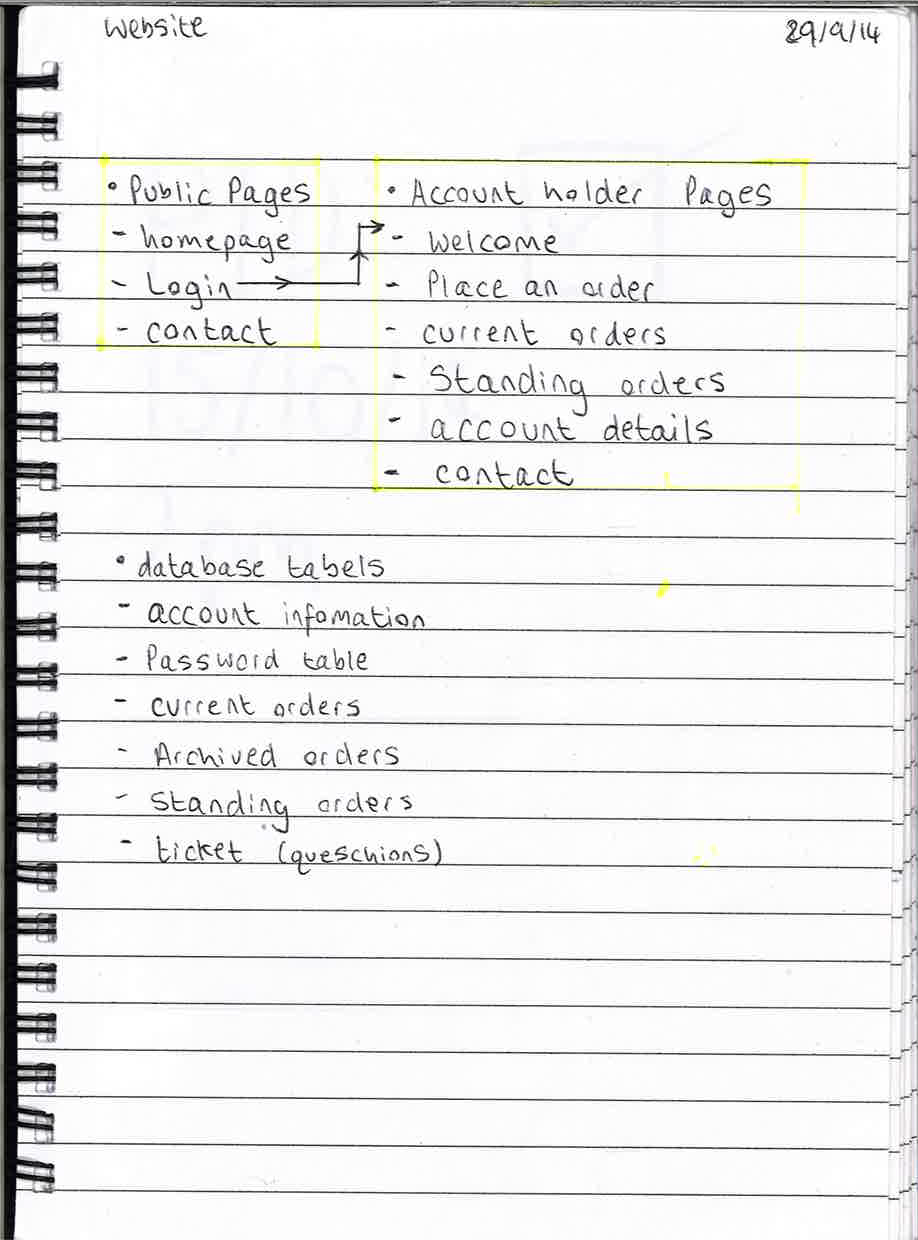 Website
29/9/14
• Public Pages
- homepage
- Login
- contact
• Account holder Pages
- Welcome
- Place an order
- current orders
- Standing orders
- account details
- contact
• database tabels
- account infomation
- Password table
- current orders
- Archived orders
- Standing orders
- ticket (queschions)